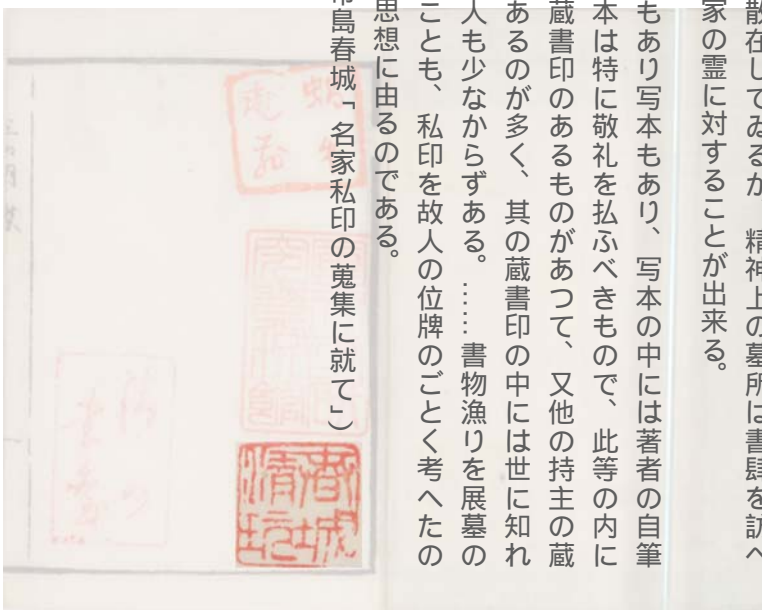 散在してゐるが 精神上の墓所は書肆を訪へ
家の霊に対することが出来る。
もあり写本もあり、写本の中には著者の自筆
本は特に敬礼を払ふべきもので、此等の内に
蔵書印のあるものがあつて、又他の持主の蔵
あるのが多く、其の蔵書印の中には世に知れ
人も少なからずある。……書物漁りを展墓の
ことも、私印を故人の位牌のごとく考へたの
思想に由るのである。
市島春城「名家私印の蒐集に就て」）
春城
清玩